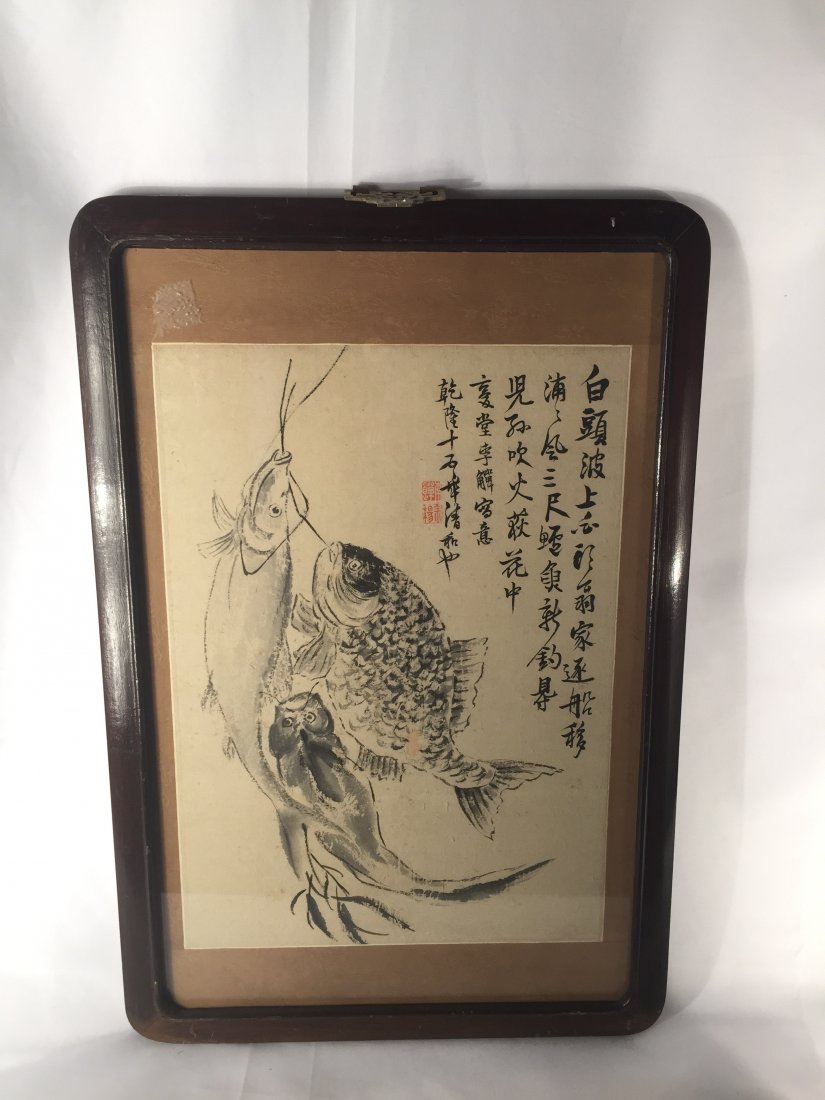 白頭波上白頭翁家逐船移
浦〻風三尺鱸魚新釣得
児孫吹火荻花中
復堂李鱓寫意
乾隆十年清和